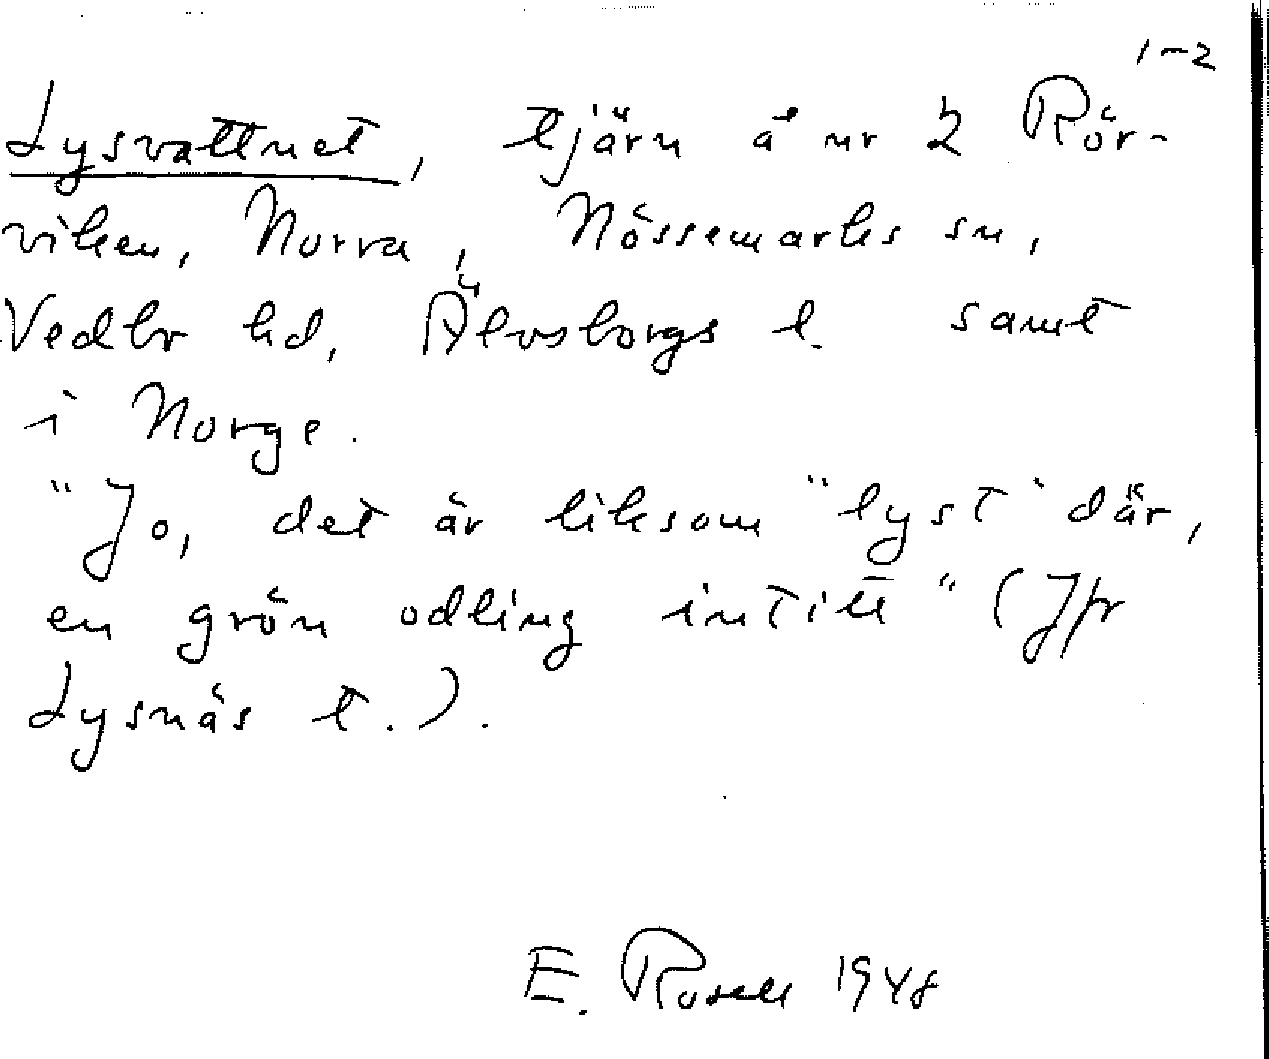 1-2
Lysvattnet, tjärn å nr 2 Rör-
viken, Norra, Nössemarks sn,
Vedbo hd, Älvsborgs l. samt
i Norge.
"Jo, det är liksom "lyst" där,
en grön odling intill" (Jfr
Lysnäs t.).
E. Rosell 1948